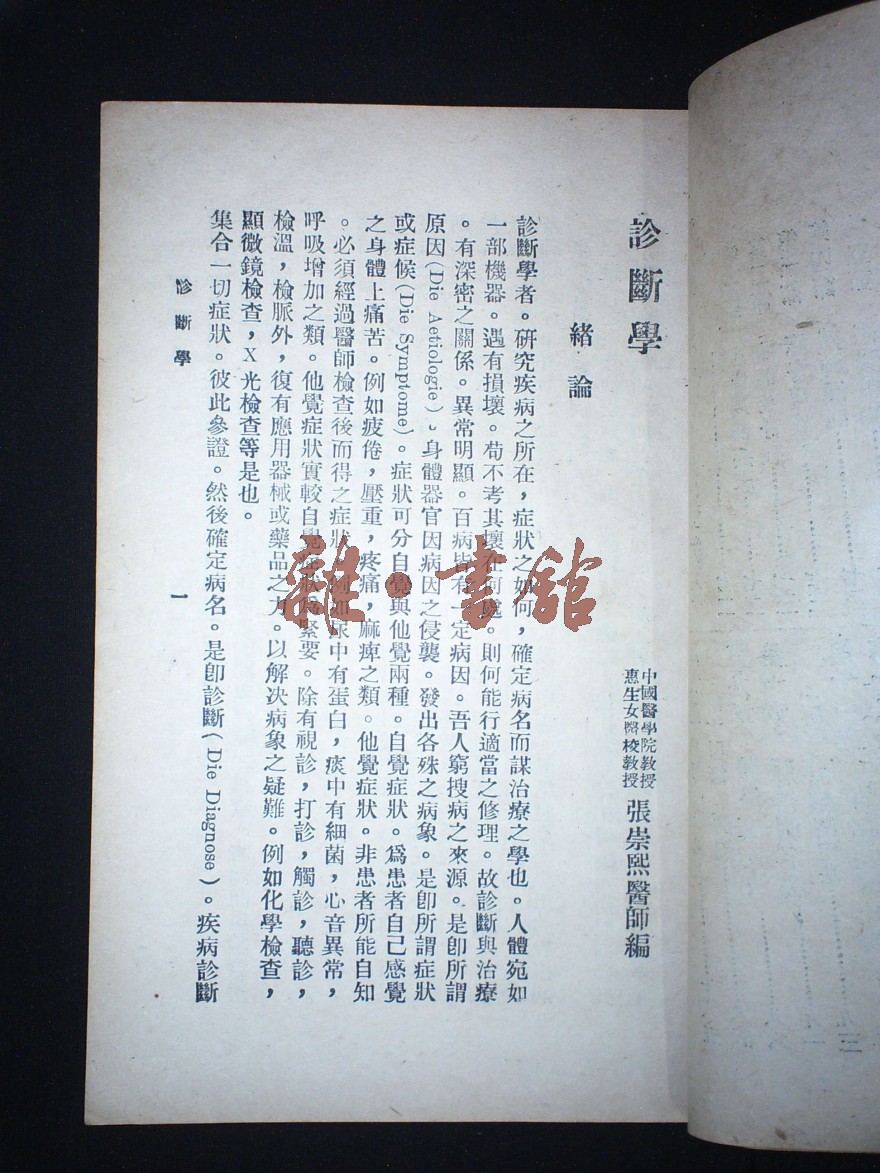 診斷學
中國醫學院教授
惠生女醫校教授
張崇熙醫師編
緒論
診斷學者。研究疾病之所在，症狀之如何，確定病名而謀治療之學也。人體宛如
一部機器。遇有損壞。苟不考其壞在何處。則何能行適當之修理。故診斷與治療
。有深密之關係。異常明顯。百病皆有一定病因。吾人窮搜病之來源。是卽所謂
原因(Die Aetiologie)。身體器官因病因之侵襲。發出各殊之病象。是卽所謂症狀
或症候(Die Symptome)。症狀可分自覺與他覺兩種。自覺症狀。爲患者自己感覺
之身體上痛苦。例如疲倦，壓重，疼痛，麻痺之類。他覺症狀。非患者所能自知
。必須經過醫師檢查後而得之症狀。例如尿中有蛋白，痰中有細菌，心音異常，
呼吸增加之類。他覺症狀實較自覺症狀爲緊要。除有視診，打診，觸診，聽診，
檢溫，檢脈外，復有應用器械或藥品之力。以解決病象之疑難。例如化學檢查，
顯微鏡檢查，X光檢查等是也。
集合一切症狀。彼此參證。然後確定病名。是卽診斷(Die Diagnose)。疾病診斷
診斷學
一
雜·書館
三